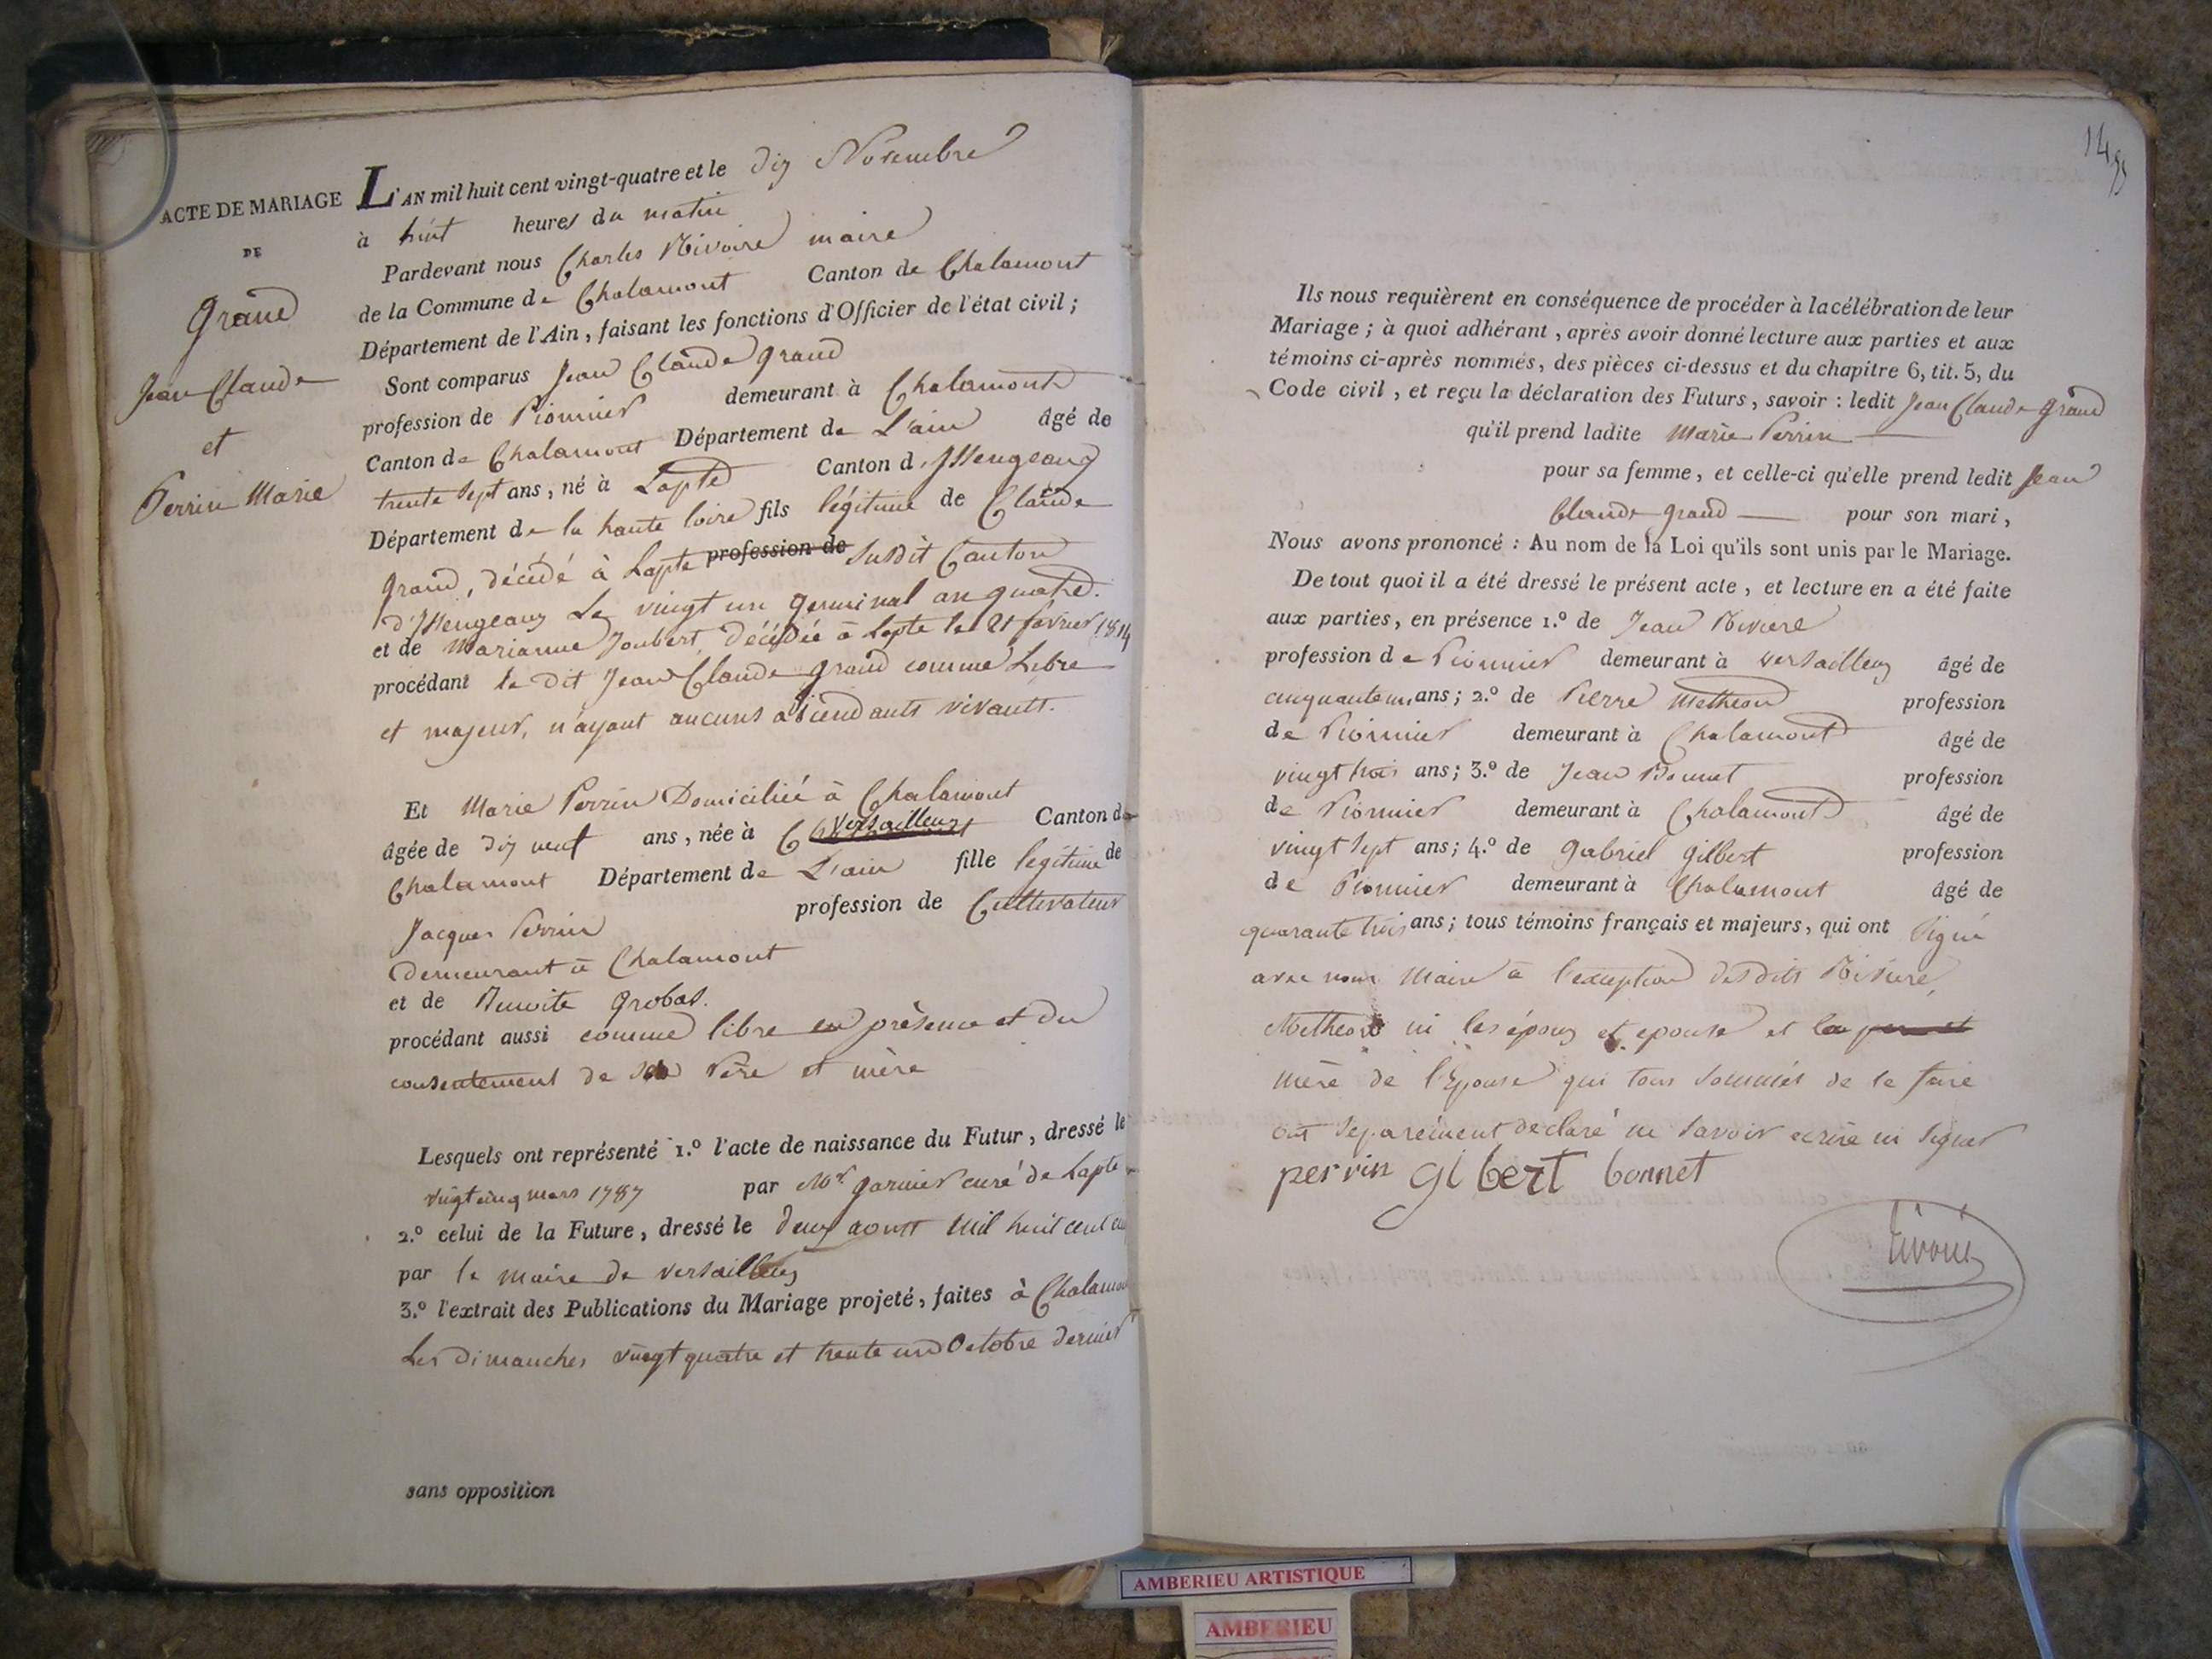 ACTE DE MARIAGE
DE
Grand
Jean Claude
et
Perrin Marie
L'AN mil huit cent vingt-quatre et le dix Novembre
à huit heures du matin
Pardevant nous Charles Rivoire maire
de la Commune de Chalamont Canton de Chalamont
Département de l'Ain, faisant les fonctions d'Officier de l'état civil;
Sont comparus Jean Claude Grand
profession de Pionnier demeurant à Chalamont
Canton de Chalamont Département de L'ain âgé de
trente sept ans, né à Lapte Canton d'Issengeaux
Département de la haute loire fils légitime de Claude
Grand, décédé à Lapte profession de susdit Canton
d'Issengeaux Le vingt un germinal an quatre.
et de Marianne Joubert, décédée à Lapte le 21 février 1814
procédant le dit Jean Claude Grand comme Libre
et majeur, n'ayant aucuns ascendants vivants.
Et Marie Perrin Domiciliée à Chalamont
âgée de dix neuf ans, née à versailleux Canton de
Chalamont Département de L'ain fille legitime de
Jacques Perrin profession de Cultivateur
Demeurant à Chalamont
et de Benoite Grobas.
procédant aussi comme libre en présence et du
consentement de ses Père et mère
Lesquels ont représenté 1.º l'acte de naissance du Futur, dressé le
vingt cinq mars 1787 par Mr. garnier curé de Lapte
2.º celui de la Future, dressé le deux aoust mil huit cent
par le maire de versailleux
3.º l'extrait des Publications du Mariage projeté, faites à Chalamont
Les Dimanches vingt quatre et trente un Octobre dernier
sans opposition
Ils nous requièrent en conséquence de procéder à la célébration de leur
Mariage; à quoi adhérant, après avoir donné lecture aux parties et aux
témoins ci-après nommés, des pièces ci-dessus et du chapitre 6, tit. 5, du
Code civil, et reçu la déclaration des Futurs, savoir: ledit Jean Claude Grand
qu'il prend ladite Marie Perrin
pour sa femme, et celle-ci qu'elle prend ledit Jean
Claude Grand pour son mari,
Nous avons prononcé: Au nom de la Loi qu'ils sont unis par le Mariage.
De tout quoi il a été dressé le présent acte, et lecture en a été faite
aux parties, en présence 1.º de Jean Riviere
profession de Pionnier demeurant à versailleux âgé de
cinquante un ans; 2.º de Pierre Metheon profession
de Pionnier demeurant à Chalamont âgé de
vingt trois ans; 3.º de Jean Bonnet profession
de Pionnier demeurant à Chalamont âgé de
vingt sept ans; 4.º de Gabriel Gilbert profession
de Pionnier demeurant à Chalamont âgé de
quarante trois ans; tous témoins français et majeurs, qui ont signé
avec nous Maire à l'exception desdits Riviere,
Metheon ni les époux et epouse et la
mère de l'Epouse qui tous sommés de le faire
ont separément declaré ne savoir ecrire ni signer
perrin gilbert bonnet
AMBERIEU ARTISTIQUE
AMBERIEU